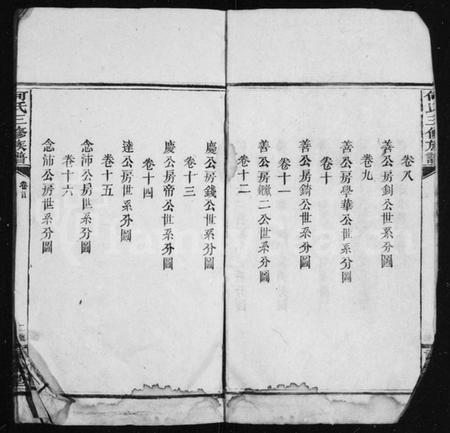 卷八
善公房釗公世系分圖
卷九
善公房學華公世系分圖
卷十
善公房錡公世系分圖
卷十一
善公房鑑二公世系分圖
卷十二
慶公房錢公世系分圖
卷十三
慶公房帝公世系分圖
卷十四
達公房世系分圖
卷十五
念沛公房世系分圖
卷十六
念沛公房世系分圖
何氏三修族譜
卷首
何氏三修族譜